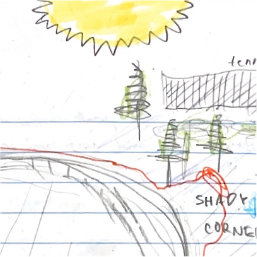 tenn
SHADY
CORNER